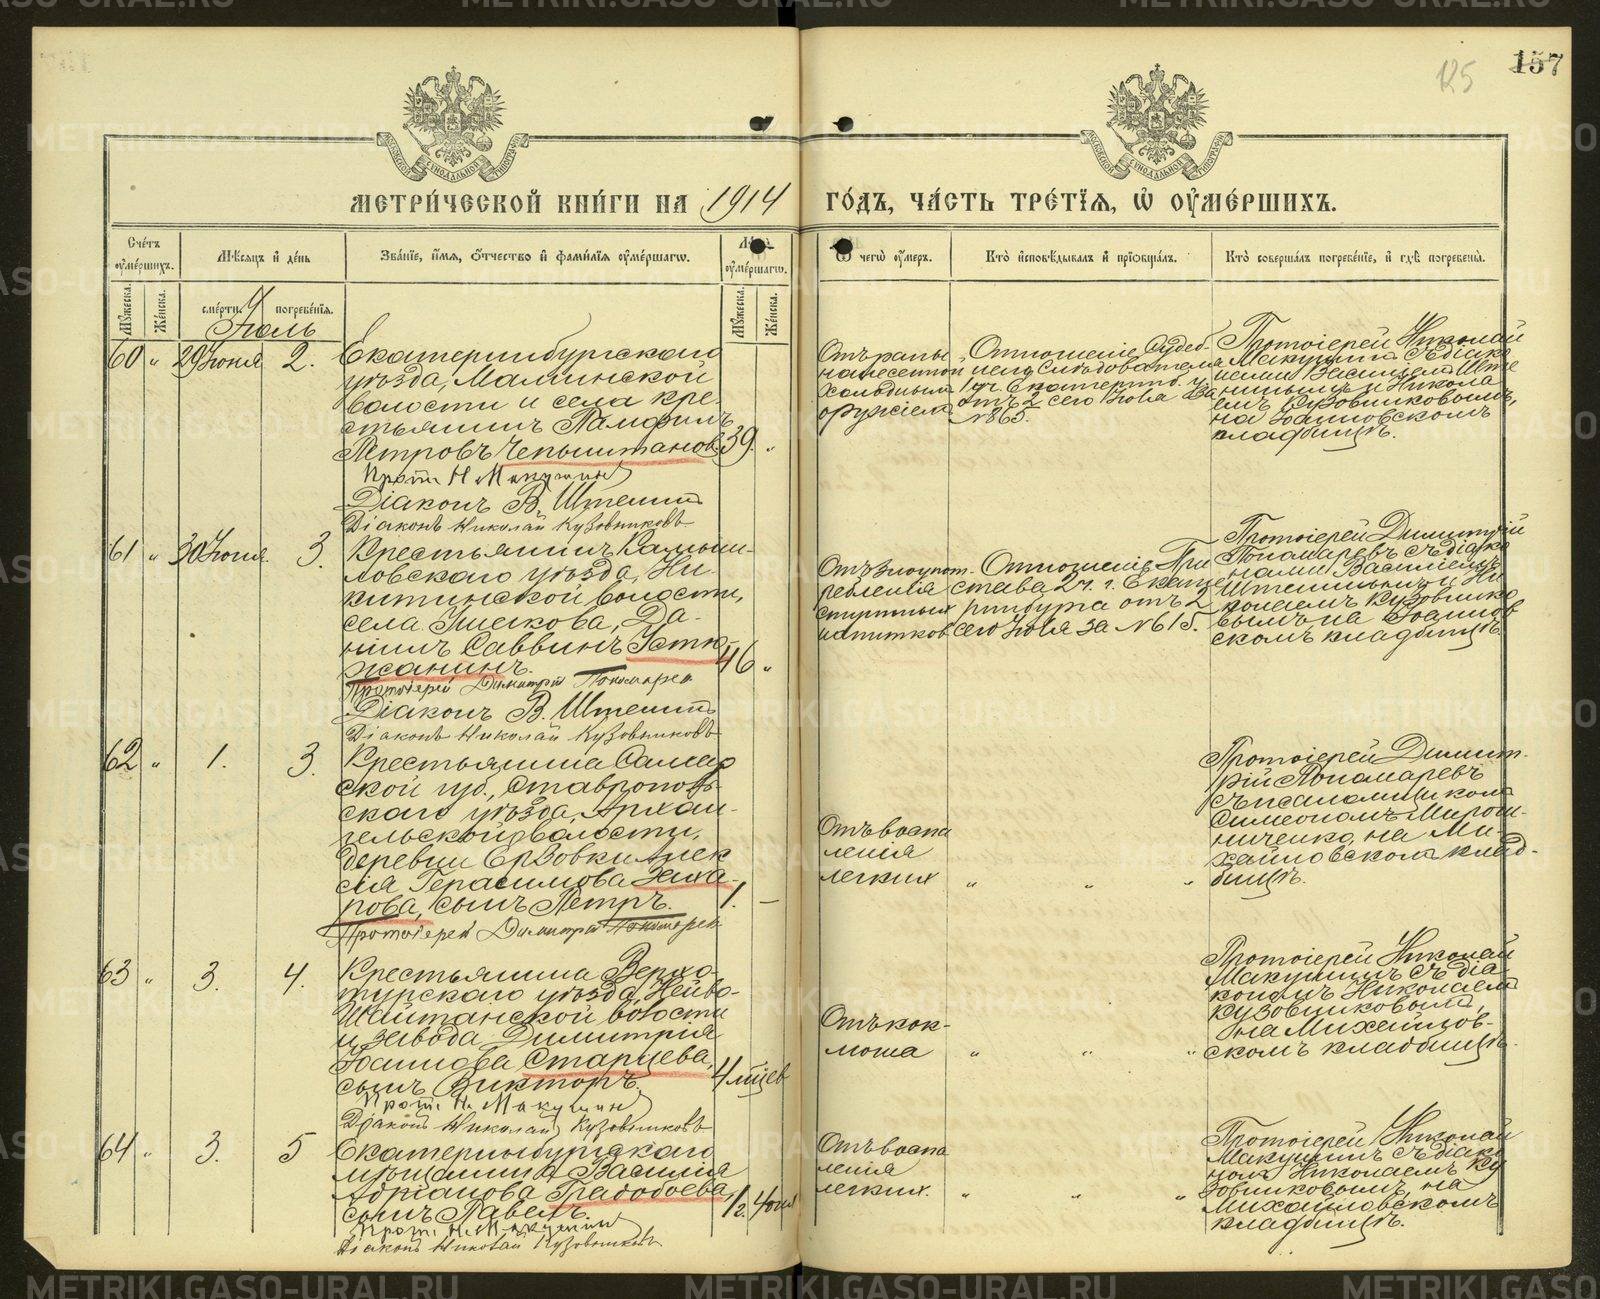 125
157
МОСКОВСКОЙ СѴНОДАЛЬНОЙ ТИПОГРАФІИ
МОСКОВСКОЙ СѴНОДАЛЬНОЙ ТИПОГРАФІИ
МЕТРИ́ЧЕСКОЙ КНИ́ГИ НА 1914 ГО́ДЪ, ЧА́СТЬ ТРЕ́ТІЯ, Ѽ ОУ҆МЕ́РШИХЪ.
Сче́тъ оу҆ме́ршихъ.
Мѣ́сяцъ и҆ де́нь
Зва́ніе, и҆́мя, ѻ҆́тчество и҆ фами́лія оу҆ме́ршагѡ.
оу҆ме́ршагѡ.
Ѿ чегѡ̀ оу҆́меръ.
Кто̀ и҆сповѣ́дывалъ и҆ прїѡбща́лъ.
Кто̀ соверша́лъ погребе́ніе, и҆ гдѣ̀ погребены̀.
Мꙋ́жеска.
Же́нска.
сме́рти.
погребе́нія.
Мꙋ́жеска.
Же́нска.
Іюль
60 „ 29 Іюня 2.
Екатеринбургскаго
уѣзда, Маминской
волости и села кре-
стьянинъ Памфилъ
Петровъ Чепыштановъ. 39. „
Прот. Н. Макушинъ
Діаконъ В. Штенинъ
Діаконъ Николай Кузовниковъ
Отъ раны
нанесенной
холоднымъ
оружіемъ
Отношеніе Судеб-
наго Слѣдователя
1 уч. Екатеринб. у.
отъ 2 сего Іюля за
№ 865.
Протоіерей Николай
Макушинъ съ діако-
нами Василіемъ Ште-
нинымъ и Никола-
емъ Кузовниковымъ,
на Іоанновскомъ
кладбищѣ.
61 „ 30 Іюня. 3.
Крестьянинъ Камыш-
ловскаго уѣзда, Ни-
китинской волости,
села
Да-
ніилъ Саввинъ Устю-
жанинъ. 46 „
Протоіерей Димитрій Пономарев
Діаконъ В. Штенинъ
Діаконъ Николай Кузовниковъ
Отъ злоупот-
ребленія
спиртныхъ
напитковъ
Отношеніе При-
става 2 ч. г. Екате-
ринбурга отъ 2
сего Іюля за № 615.
Протоіерей Димитрій
Пономаревъ съ діако-
нами Василіемъ
Штенинымъ и Ни-
колаемъ Кузовнико-
вымъ на Іоаннов-
скомъ кладбищѣ.
62 „ 1. 3.
Крестьянина Самар-
ской губ., Ставрополь-
скаго уѣзда, Архан-
гельской волости,
деревни Ерзовки Алек-
сія Герасимова Заха-
рова, сынъ Петръ. 1. –
Протоіерей Димитрій Пономарев
Отъ воспа-
ленія
легкихъ „ „ „
Протоіерей Димит-
рій Пономаревъ
съ псаломщикомъ
Симеономъ Мирош-
ниченко, на Ми-
хайловскомъ клад-
бищѣ.
63 „ 3. 4.
Крестьянина Верхо-
турскаго уѣзда, Нейво-
Шайтанской волости
и завода Димитрія
Іоаннова Старцева,
сынъ Викторъ. 4 мѣсцев
Прот. Н. Макушинъ
Діаконъ Николай Кузовниковъ
Отъ кок-
люша „ „ „
Протоіерей Николай
Макушинъ съ діа-
кономъ Николаемъ
Кузовниковымъ,
на Михайлов-
скомъ кладбищѣ.
64 „ 3. 5
Екатеринбургскаго
мѣщанина Василія
Адріанова Градобоева,
сынъ Павелъ. 1/2.
Прот. Н. Макушинъ
Діаконъ Николай Кузовниковъ
Отъ воспа-
ленія
легкихъ. „ „ „
Протоіерей Николай
Макушинъ съ діако-
номъ Николаемъ Ку-
зовниковымъ, на
Михайловскомъ
кладбищѣ.
METRIKI.GASO-URAL.RU